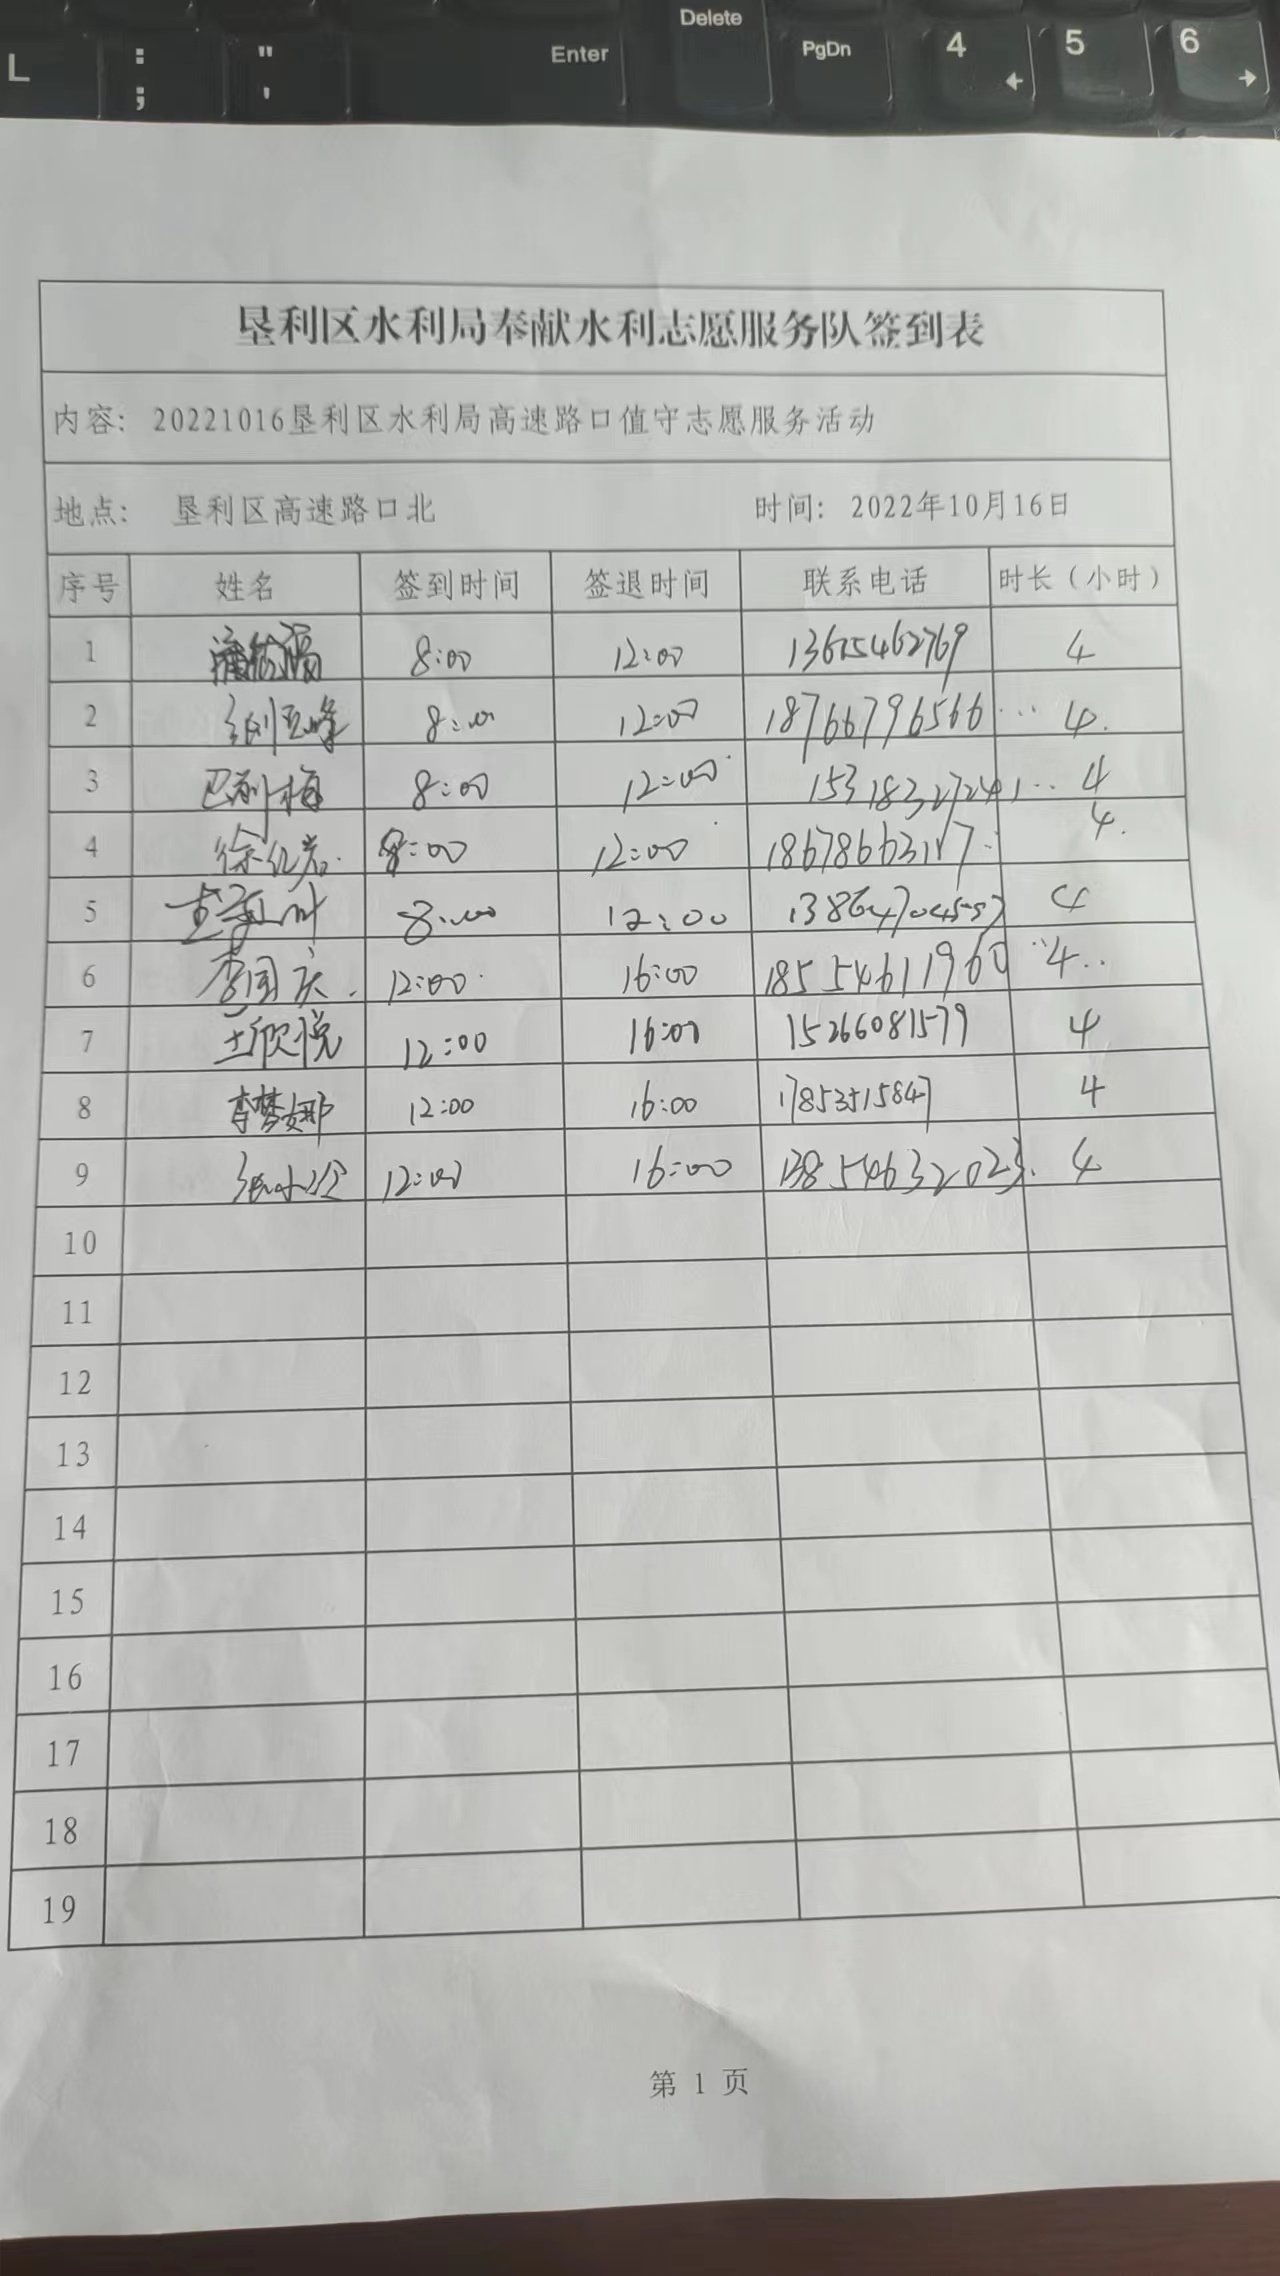 Delete
L : ; " ' Enter PgDn 4 5 6
垦利区水利局奉献水利志愿服务队签到表
内容: 20221016垦利区水利局高速路口值守志愿服务活动
地点: 垦利区高速路口北 时间: 2022年10月16日
序号 姓名 签到时间 签退时间 联系电话 时长（小时）
1 8:00 12:00 13615462769 4
2 8:00 12:00 18766796566 4
3 8:00 12:00 15318327241 4
4 8:00 12:00 4
5 8:00 12:00 4
6 李国庆 12:00 16:00 18554611960 4
7 王欣悦 12:00 16:00 15266081579 4
8 李梦娜 12:00 16:00 17853515847 4
9 12:00 16:00 13854632023 4
10
11
12
13
14
15
16
17
18
19
第 1 页